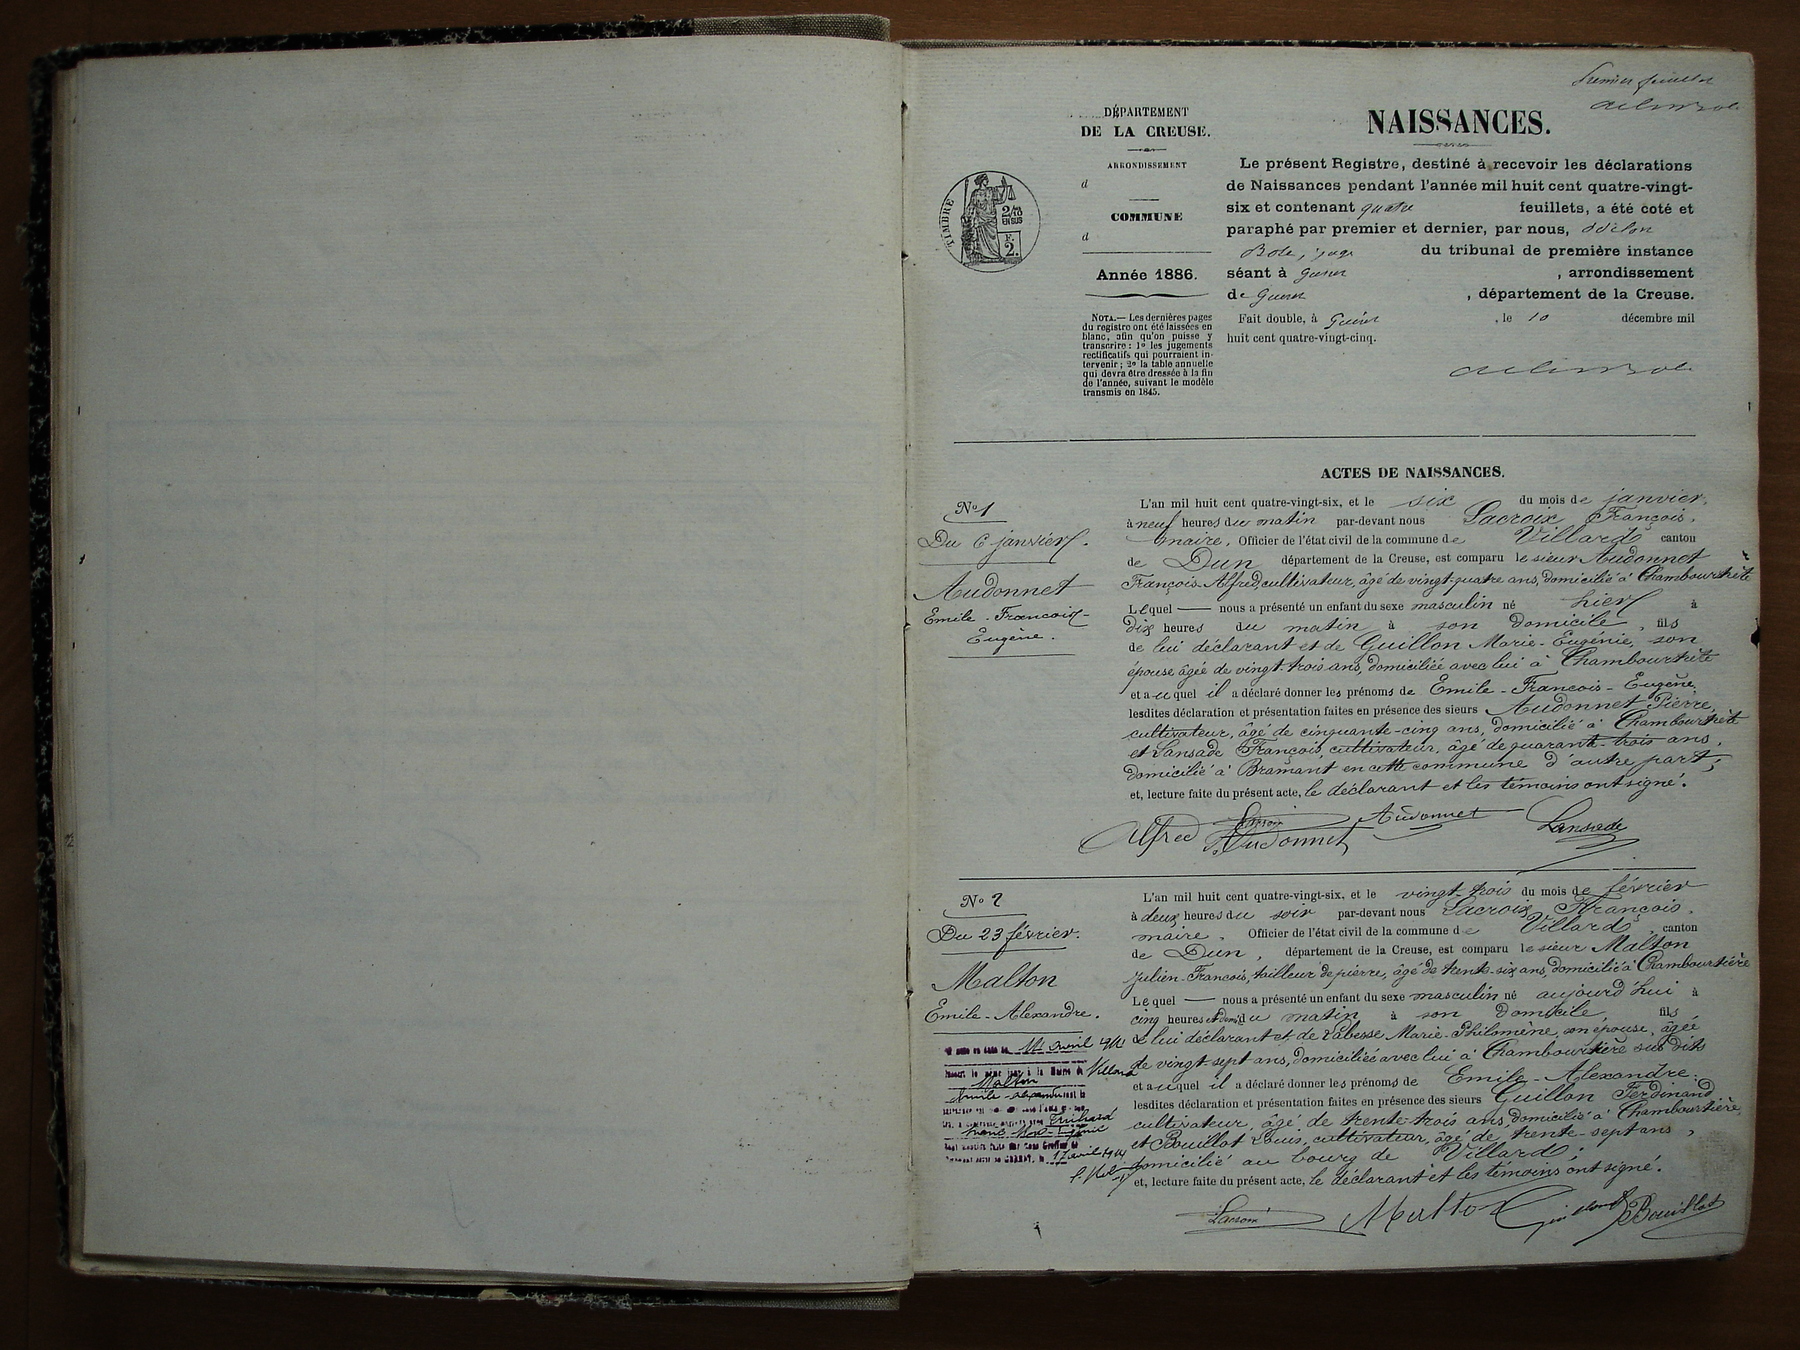 Premier feuillet
DÉPARTEMENT
DE LA CREUSE.
ARRONDISSEMENT
d
COMMUNE
d
Année 1886.
NOTA.— Les dernières pages
du registre ont été laissées en
blanc, afin qu'on puisse y
transcrire : 1º les jugements
rectificatifs qui pourraient in-
tervenir ; 2º la table annuelle
qui devra être dressée à la fin
de l'année, suivant le modèle
transmis en 1845.
TIMBRE
2/10
EN SUS
F.
2.
NAISSANCES.
Le présent Registre, destiné à recevoir les déclarations
de Naissances pendant l'année mil huit cent quatre-vingt-
six et contenant quatre feuillets, a été coté et
paraphé par premier et dernier, par nous, Odilon
Bole, juge du tribunal de première instance
séant à Guéret , arrondissement
de Guéret , département de la Creuse.
Fait double, à Guéret , le 10 décembre mil
huit cent quatre-vingt-cinq.
ACTES DE NAISSANCES.
Nº 1
Du 6 janvier.
Audonnet
Emile - François-
Eugène.
L'an mil huit cent quatre-vingt-six, et le six du mois de janvier,
à neuf heures du matin par-devant nous Lacroix François,
maire, Officier de l'état civil de la commune de Villard canton
de Dun département de la Creuse, est comparu le sieur Audonnet
François-Alfred, cultivateur, âgé de vingt-quatre ans, domicilié à Chambourtiète
Lequel — nous a présenté un enfant du sexe masculin né hier à
dix heures du matin à son domicile, fils
de lui déclarant et de Guillon Marie-Eugénie, son
épouse âgée de vingt-trois ans, domiciliée avec lui à Chambourtiète
et auquel il a déclaré donner les prénoms de Emile - François - Eugène,
lesdites déclaration et présentation faites en présence des sieurs Audonnet Pierre,
cultivateur, âgé de cinquante-cinq ans, domicilié à Chambourtiète
et Lansade François, cultivateur, âgé de quarante-trois ans,
domicilié à Bramant en cette commune d'autre part ;
et, lecture faite du présent acte, le déclarant et les témoins ont signé.
Lacroix Audonnet Lansade
Alfred Audonnet
Nº 2
Du 23 février.
Malton
Emile - Alexandre.
11 avril 1914
Villard
Malton
Emile-Alexandre
Trichard
17 avril 1914
L'an mil huit cent quatre-vingt-six, et le vingt-trois du mois de février
à deux heures du soir par-devant nous Lacroix François,
maire. Officier de l'état civil de la commune de Villard, canton
de Dun, département de la Creuse, est comparu le sieur Malton
Julien-François, tailleur de pierre, âgé de trente-six ans, domicilié à Chambourtière
Lequel — nous a présenté un enfant du sexe masculin né aujourd'hui à
cinq heures et demi du matin à son domicile, fils
de lui déclarant et de Labesse Marie-Philomène, son épouse, âgée
de vingt-sept ans, domiciliée avec lui à Chambourtière sus dits
et auquel il a déclaré donner les prénoms de Emile - Alexandre.
lesdites déclaration et présentation faites en présence des sieurs Guillon Ferdinand
cultivateur, âgé de trente-trois ans, domicilié à Chambourtière,
et Bouillot Louis, cultivateur, âgé de trente-sept ans,
domicilié au bourg de Villard ;
et, lecture faite du présent acte, le déclarant et les témoins ont signé.
Lacroix Malton Guillon Bouillot